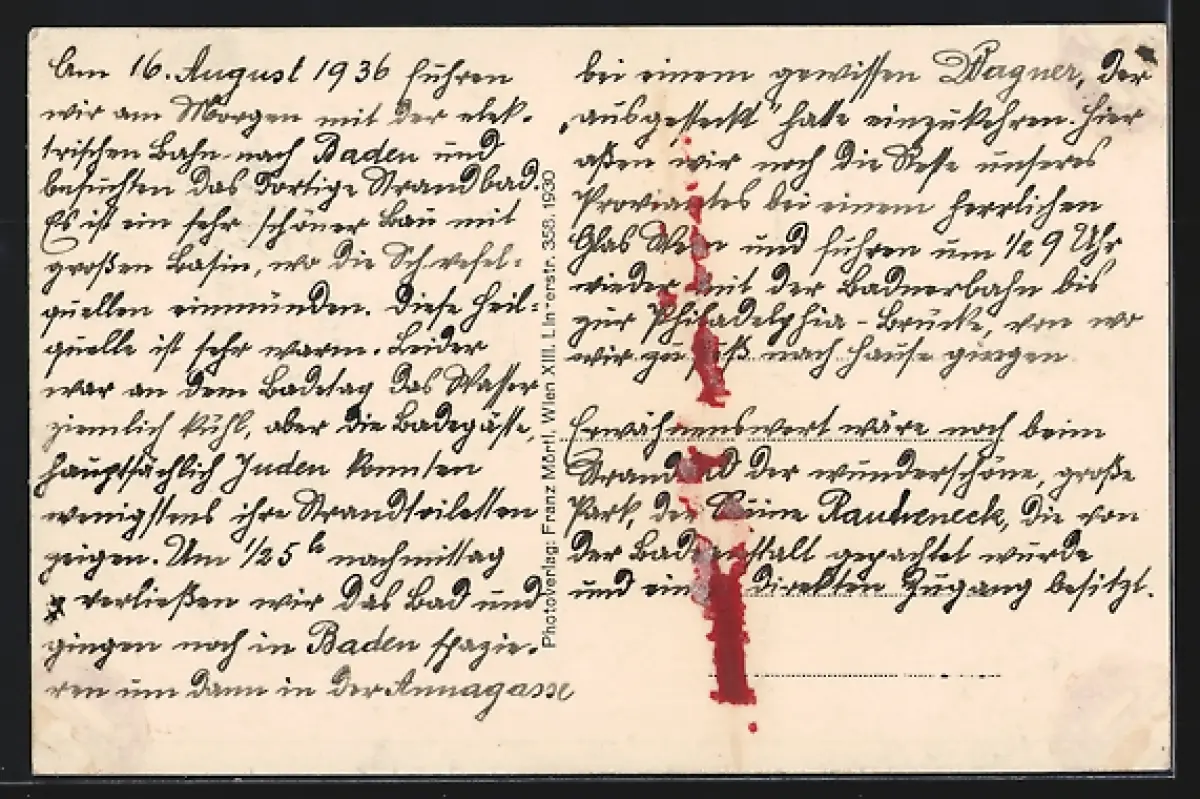 Am 16. August 1936 fuhren
wir am Morgen mit der elek-
trischen Bahn nach Baden und
besuchten das dortige Strandbad.
Es ist ein sehr schöner Bau mit
großen Basin, wo die Schwefel-
quellen einmünden. Diese Heil-
quelle ist sehr warm. Leider
war an dem Badetag das Wasser
ziemlich kühl, aber die Badegäste,
hauptsächlich Juden konnten
wenigstens ihre Strandtoiletten
zeigen. Um 1/25 h nachmittag
verließen wir das Bad und
gingen noch in Baden spazie-
ren um dann in der Annagasse
Photoverlag: Franz Mörtl, Wien XIII. Linzerstr. 358. 1930
bei einem gewissen Wagner, der
„ausgesteckt" hatte einzukehren. Hier
aßen wir noch die Reste unseres
Proviantes bei einem herrlichen
Glas Wein und fuhren um 1/2 9 Uhr
wieder mit der Badnerbahn bis
zur Philadelphia-Brücke, von wo
wir zu Fuß nach Hause gingen.
Erwähnenswert wäre noch beim
Strandbad der wunderschöne, große
Park, der Ruine Rauheneck, die von
der Badeanstalt gepachtet wurde
und einen direkten Zugang besitzt.